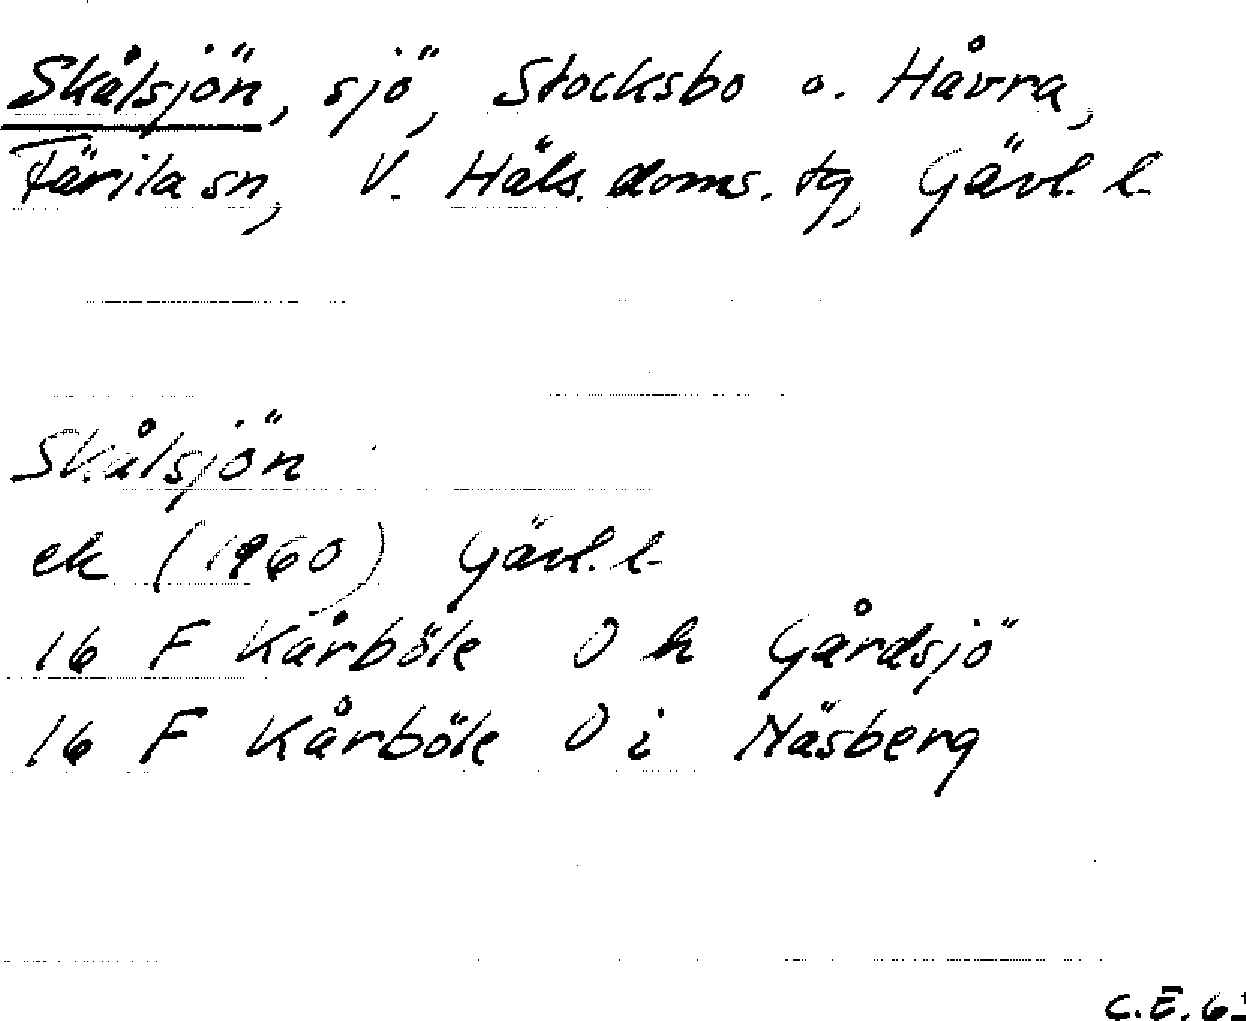 Skålsjön, sjö, Stocksbo o. Håvra,
Färila sn, V. Häls. doms. tg, Gävl. l.
Skålsjön
ek (1960) Gävl. l.
16 F Kårböle 0 h Gårdsjö
16 F Kårböle 0 i Näsberg
C.E.